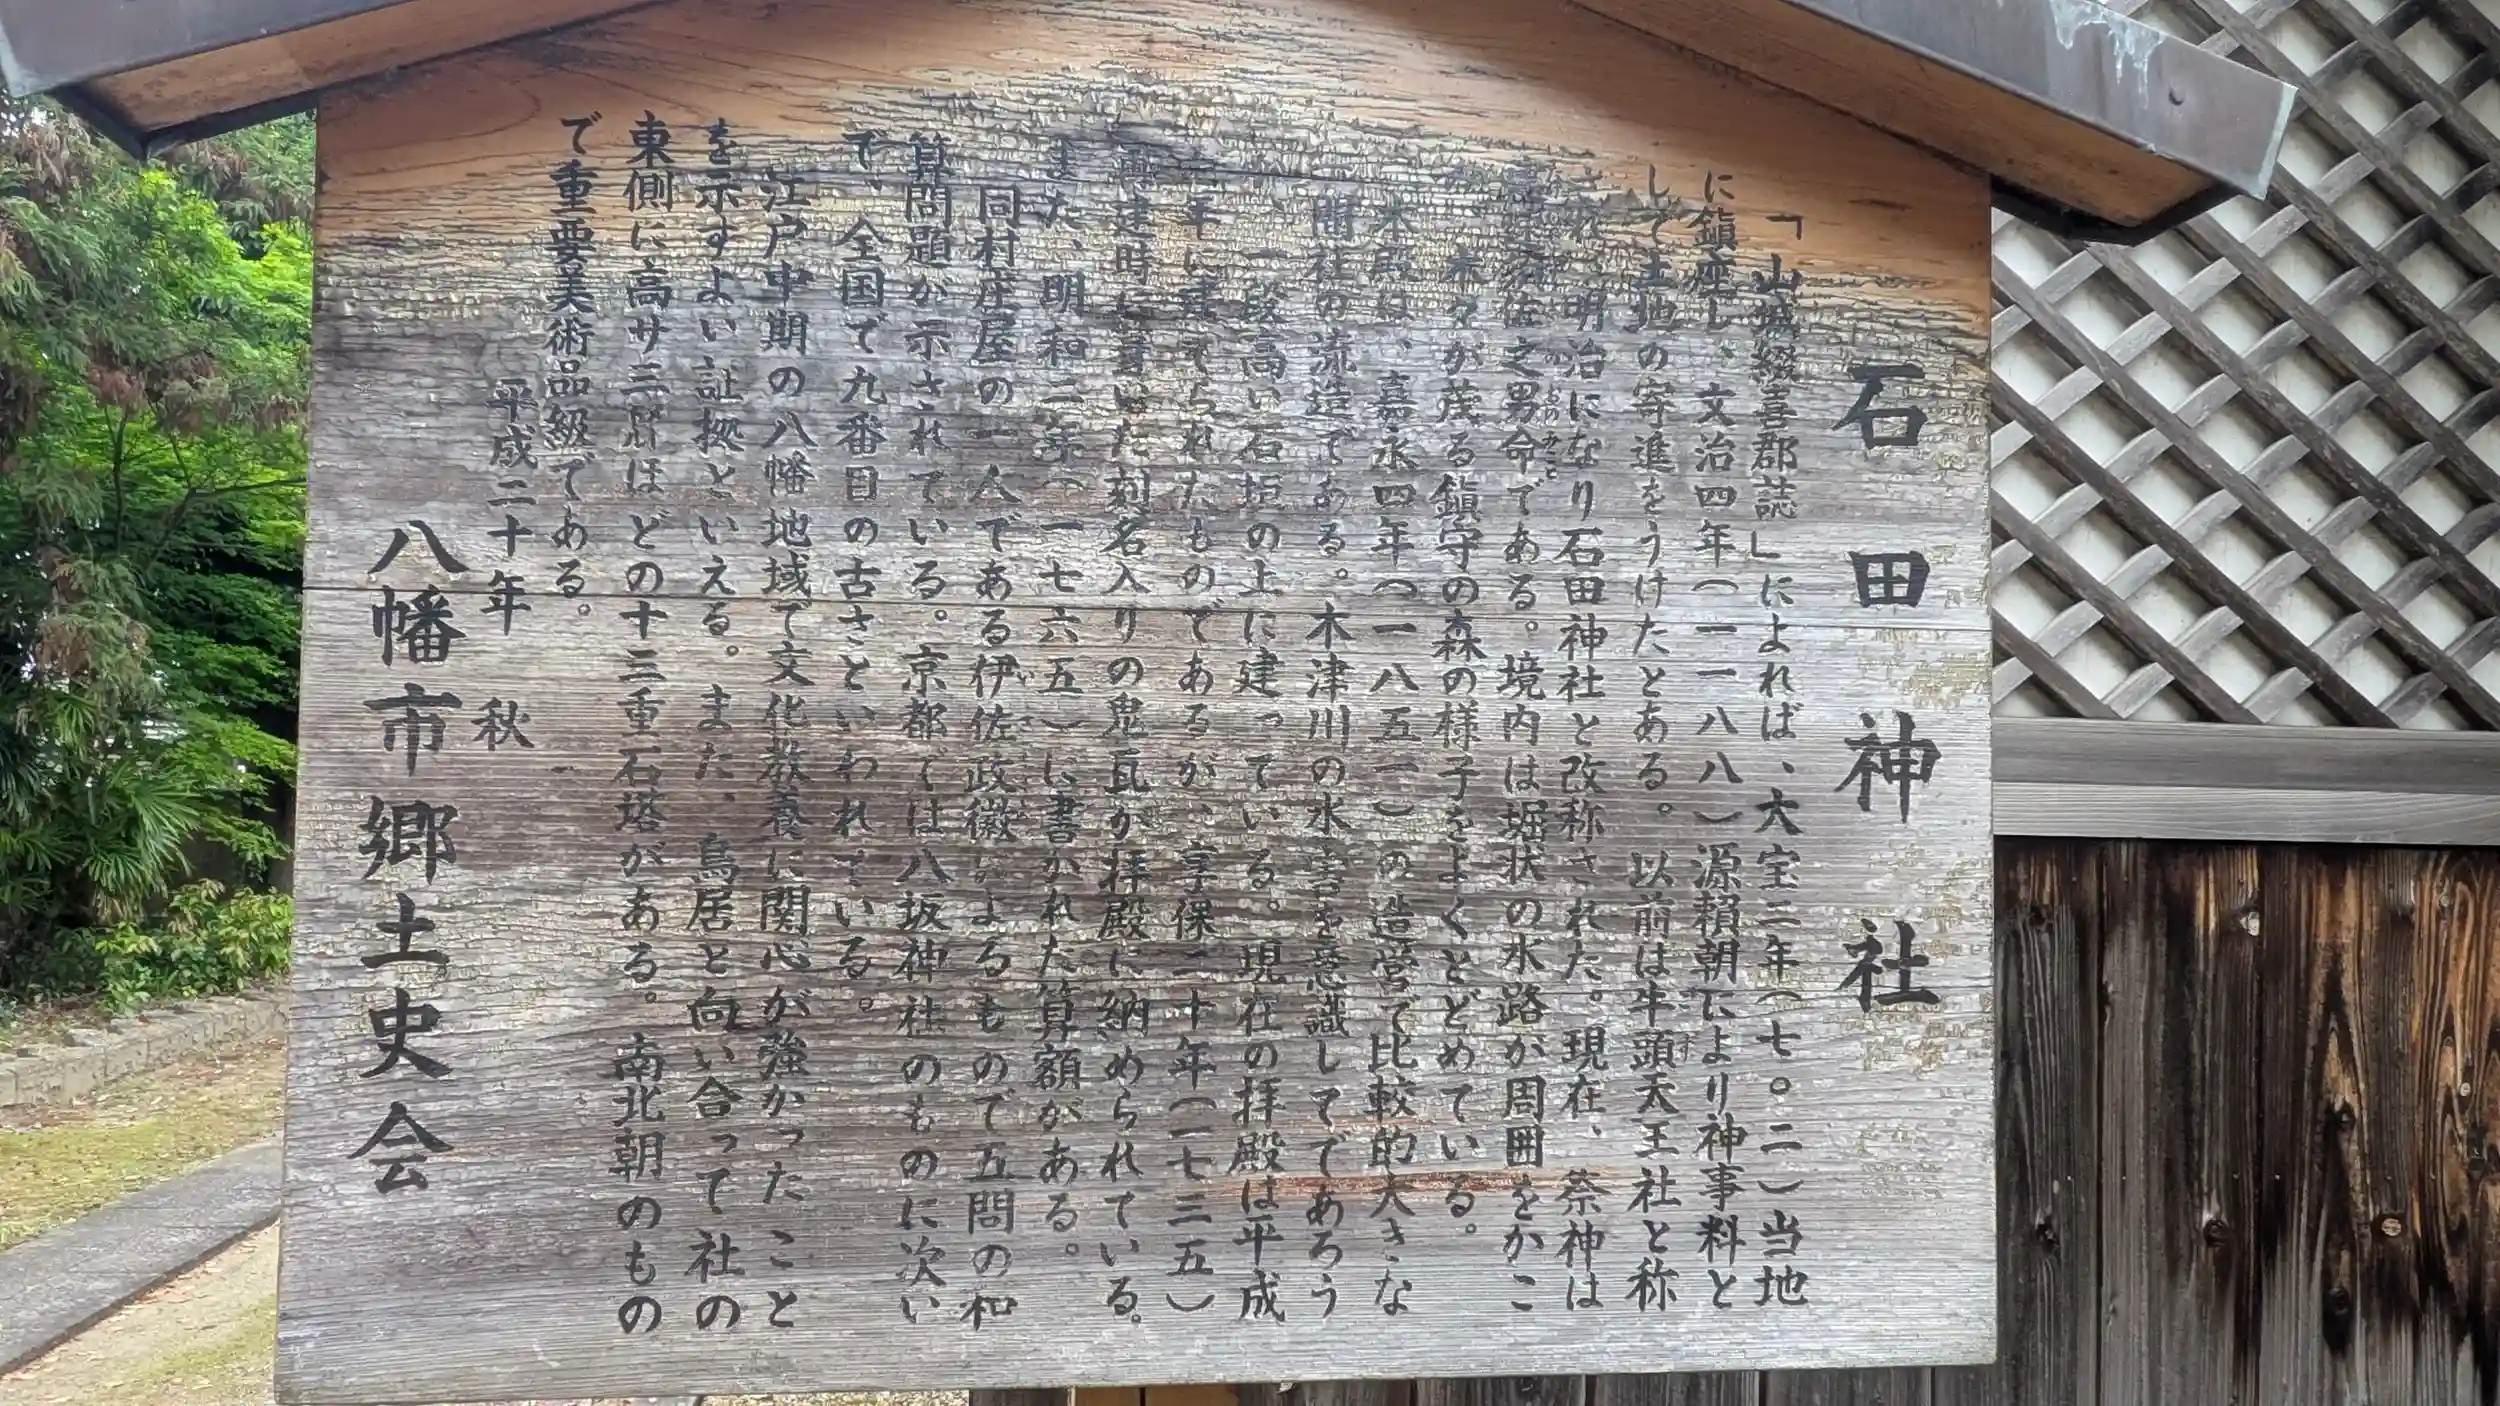 石田神社
「山城綴喜郡誌」によれば、大宝二年(七〇二)当地
に鎮座し、文治四年(一一八八)源頼朝により神事料と
して土地の寄進をうけたとある。以前は牛頭天王社と称
明治になり石田神社と改称された。現在、祭神は
之男命である。境内は堀状の水路が周囲をかこ
木々が茂る鎮守の森の様子をよくとどめている。
本殿は、嘉永四年(一八五一)の造営で比較的大きな
間社の流造である。木津川の水害を意識してであろう
一段高い石垣の上に建っている。現在の拝殿は平成
年に建てられたものであるが、享保二十年(一七三五)
再建時に葺いた刻名入りの鬼瓦が拝殿に納められている。
また、明和二年(一七六五)に書かれた算額がある。
同村庄屋の一人である伊佐政徽によるもので五問の和
算問題が示されている。京都では八坂神社のものに次い
で、全国で九番目の古さといわれている。
江戸中期の八幡地域で文化教養に関心が強かったこと
を示すよい証拠といえる。また、鳥居と向い合って社の
東側に高サ三㍍ほどの十三重石塔がある。南北朝のもの
で重要美術品級である。
平成二十年 秋
八幡市郷土史会